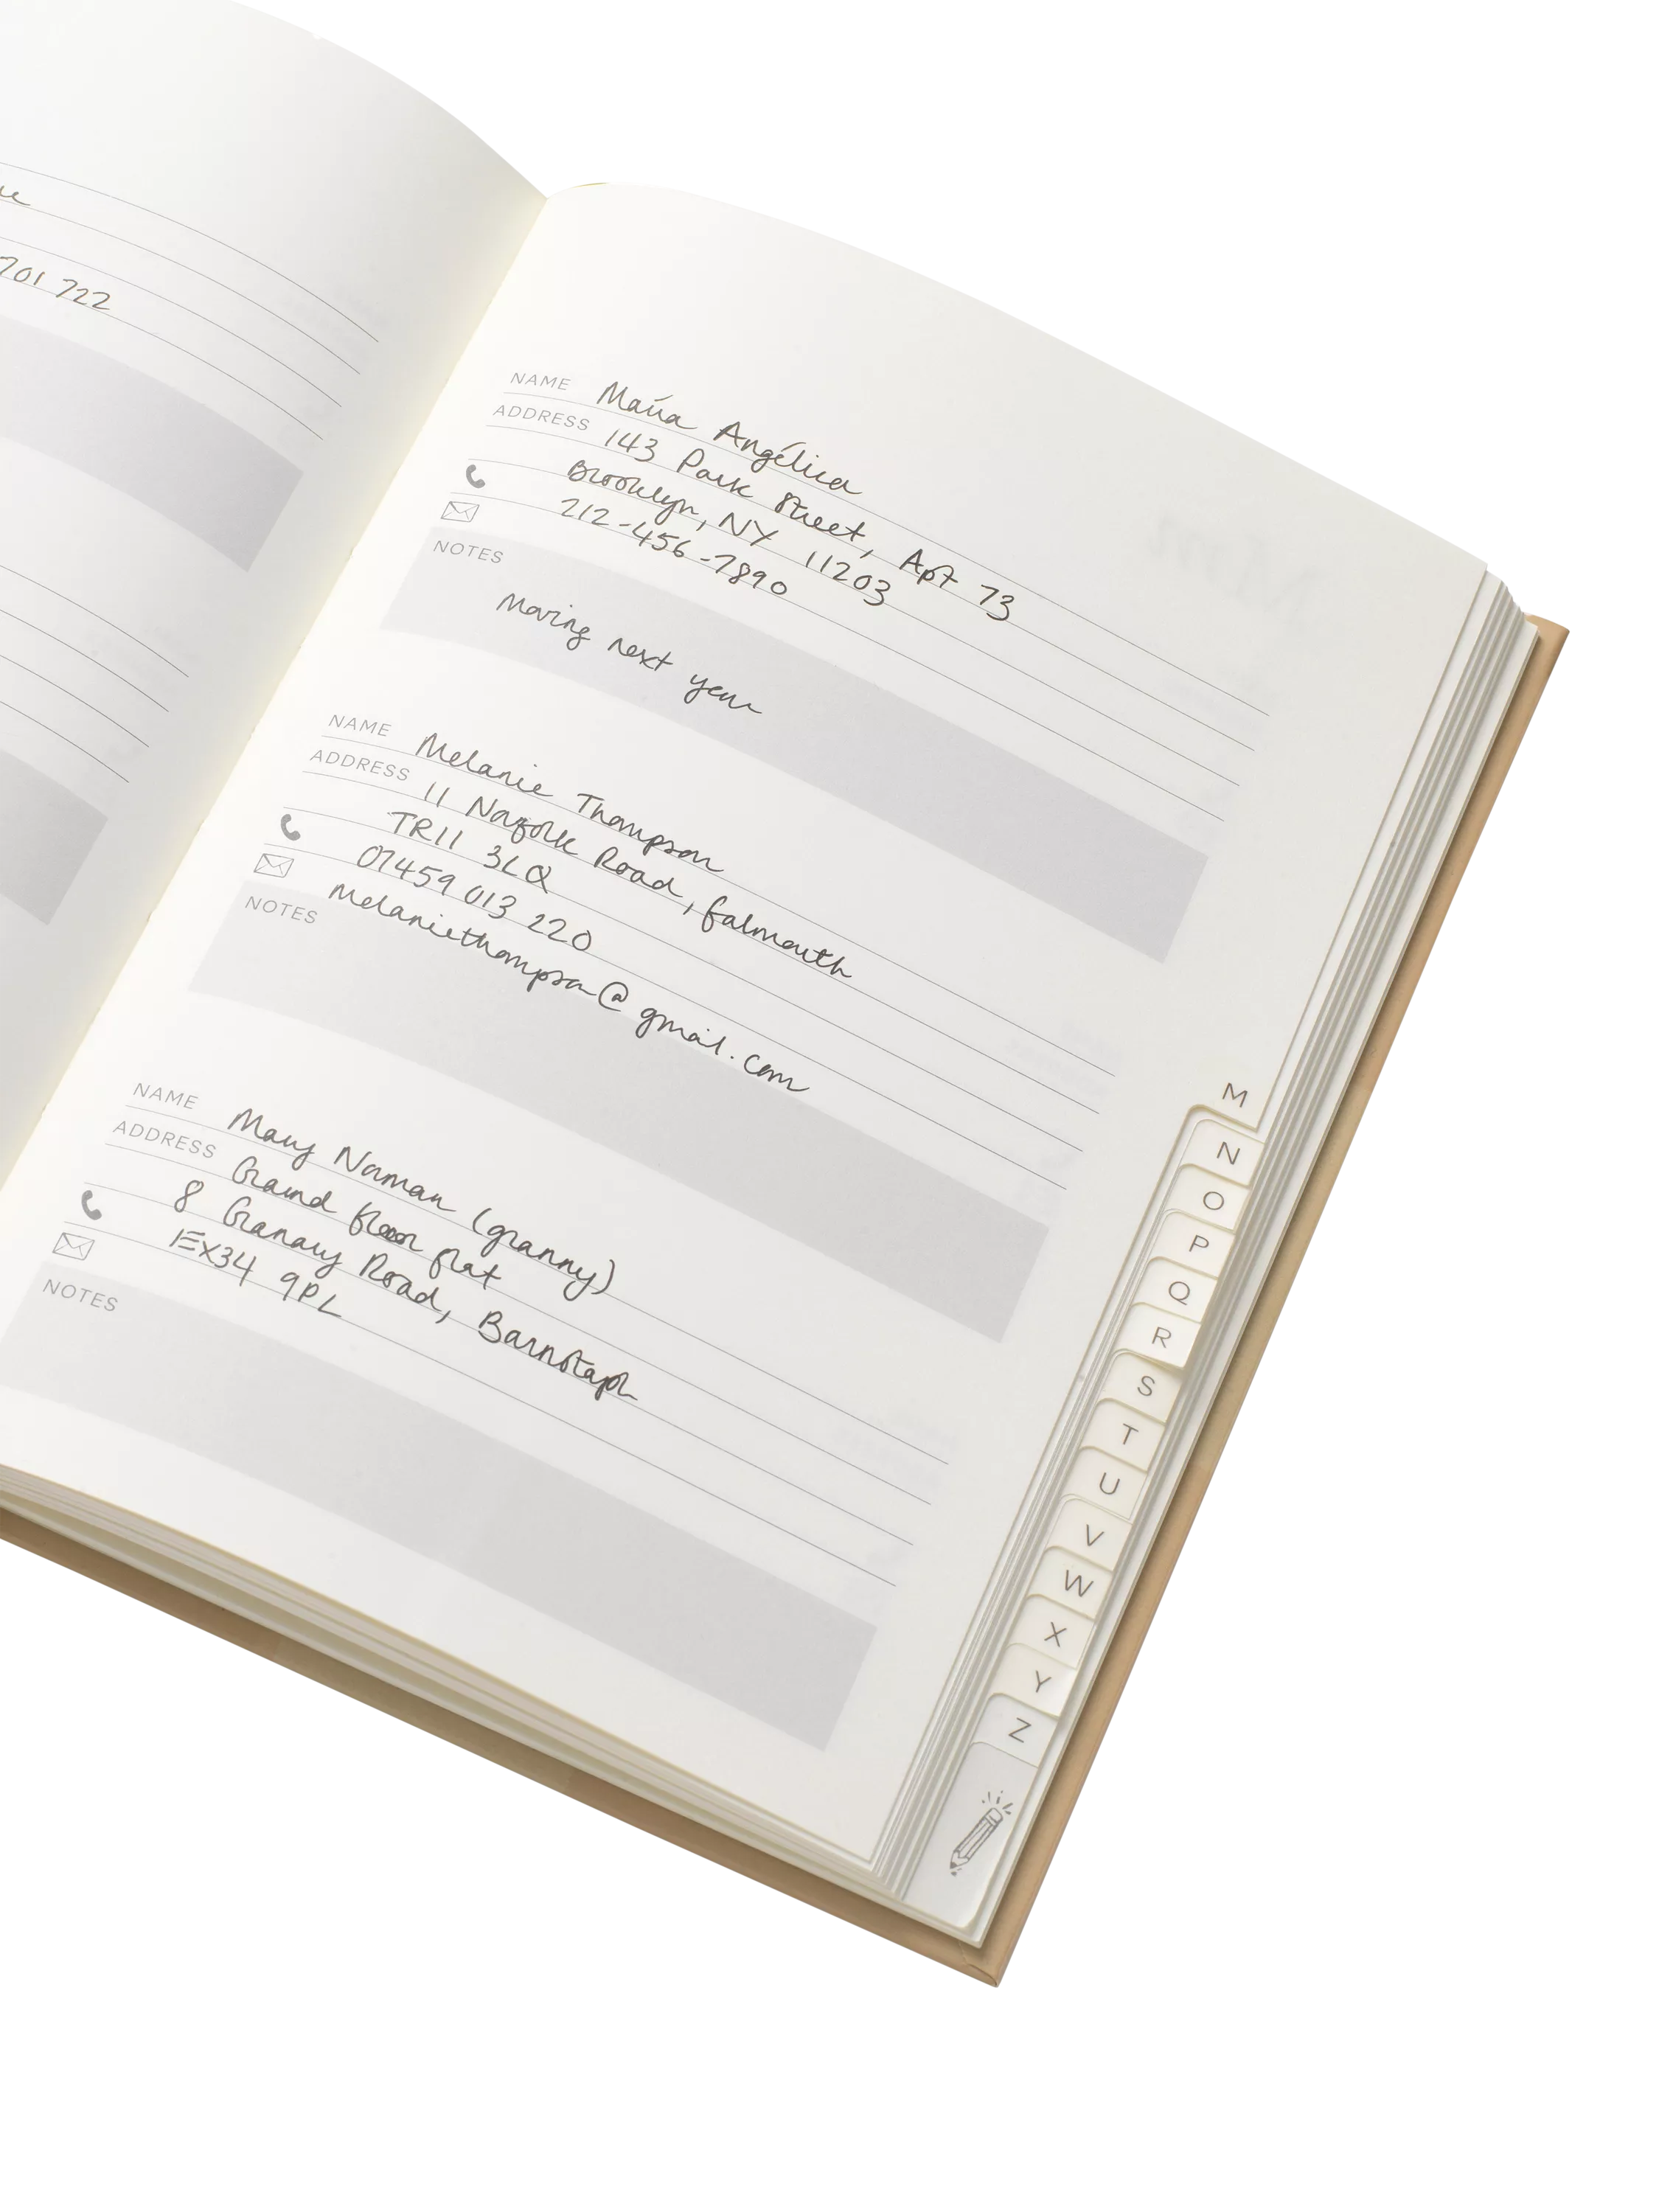 701 722
NAME María Angélica
ADDRESS 143 Park Street, Apt 73
Brooklyn, NY 11203
212-456-7890
NOTES
Moving next year
NAME Melanie Thompson
ADDRESS 11 Norfolk Road, Falmouth
TR11 3LQ
07459 013 220
melaniethompson@gmail.com
NOTES
NAME Mary Norman (granny)
ADDRESS Ground floor flat
8 Granary Road, Barnstaple
EX34 9PL
NOTES
M
N
O
P
Q
R
S
T
U
V
W
X
Y
Z